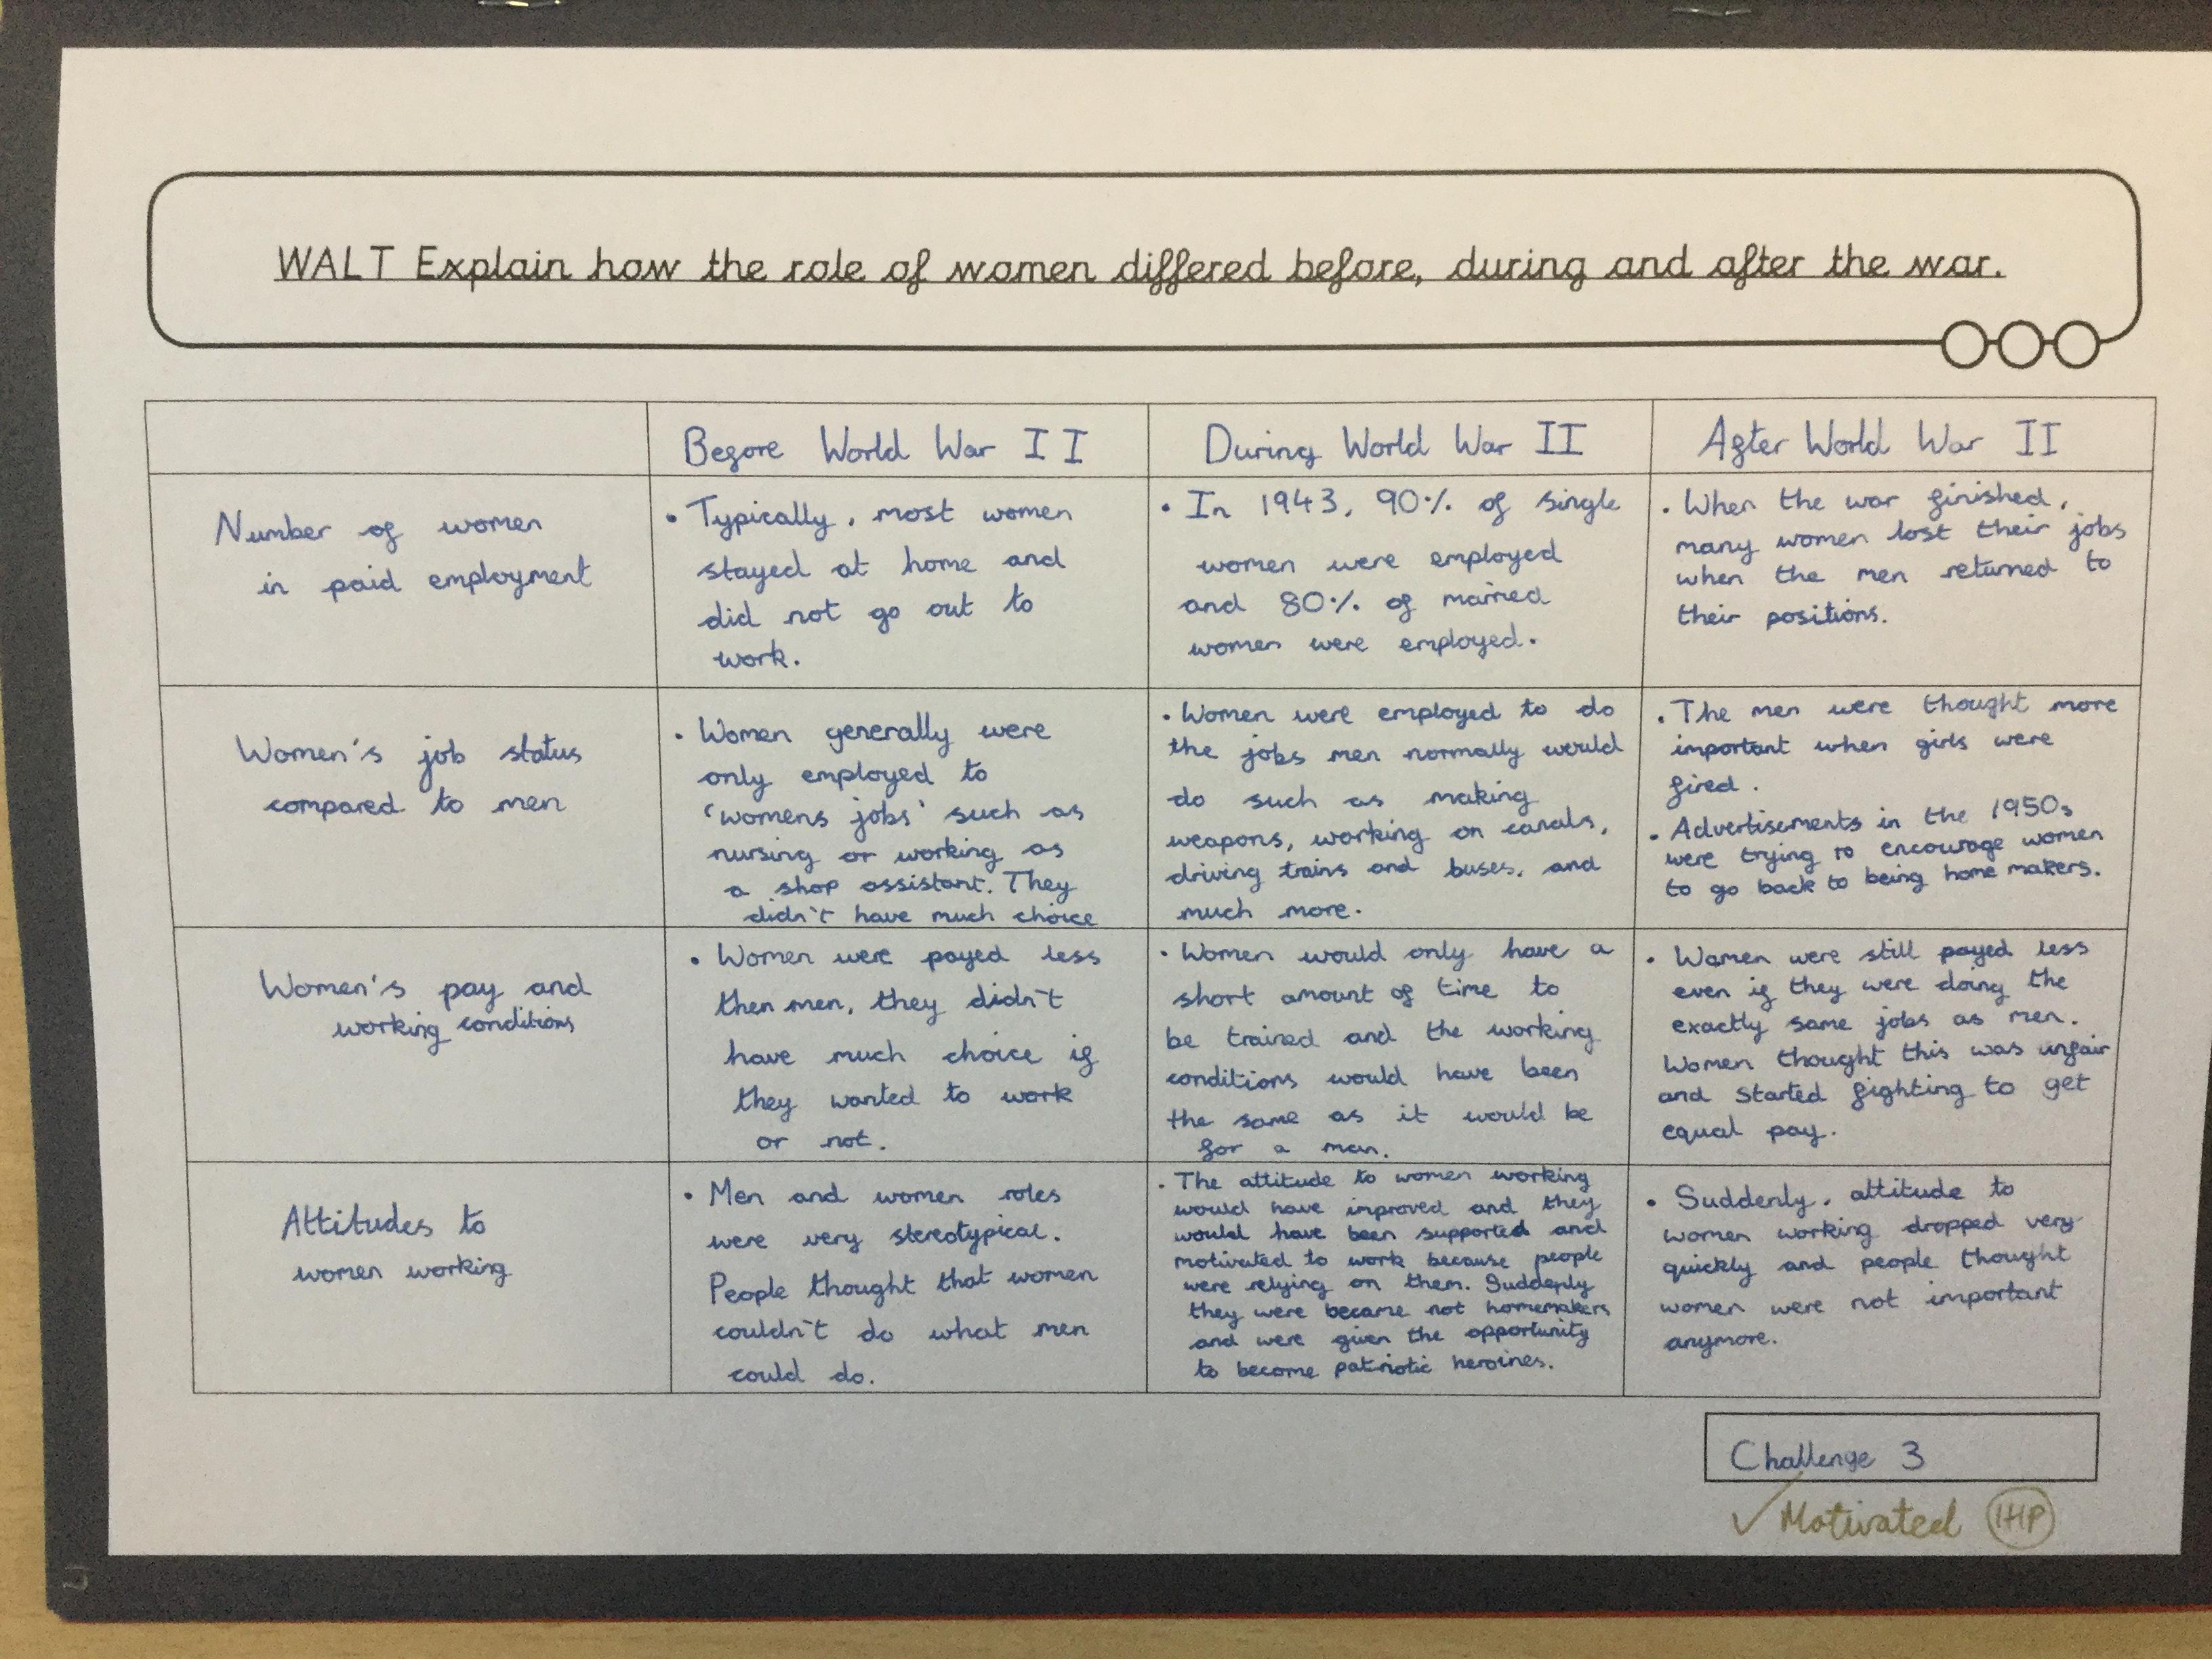 WALT Explain how the role of women differed before, during and after the war.
Before World War II
During World War II
After World War II
Number of women
in paid employment
• Typically, most women
stayed at home and
did not go out to
work.
• In 1943, 90% of single
women were employed
and 80% of married
women were employed.
• When the war finished,
many women lost their jobs
when the men returned to
their positions.
Women's job status
compared to men
• Women generally were
only employed to
'womens jobs' such as
nursing or working as
a shop assistant. They
didn't have much choice
• Women were employed to do
the jobs men normally would
do such as making
weapons, working on canals,
driving trains and buses, and
much more.
• The men were thought more
important when girls were
fired.
• Advertisements in the 1950s
were trying to encourage women
to go back to being home makers.
Women's pay and
working conditions
• Women were payed less
then men, they didn't
have much choice if
they wanted to work
or not.
• Women would only have a
short amount of time to
be trained and the working
conditions would have been
the same as it would be
for a man.
• Women were still payed less
even if they were doing the
exactly same jobs as men.
Women thought this was unfair
and started fighting to get
equal pay.
Attitudes to
women working
• Men and women roles
were very stereotypical.
People thought that women
couldn't do what men
could do.
• The attitude to women working
would have improved and they
would have been supported and
motivated to work because people
were relying on them. Suddenly
they were became not homemakers
and were given the opportunity
to become patriotic heroines.
• Suddenly, attitude to
women working dropped very
quickly and people thought
women were not important
anymore.
Challenge 3
✓ Motivated IHP